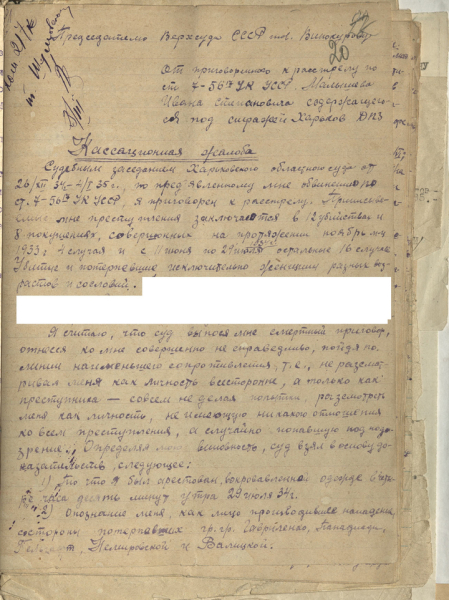 Председателю Верхсуда СССР тов. Винокурову
20
От приговоренного к расстрелу по
ст 7-56 17 УК УССР. Малышева
Ивана Степановича содержащего-
ся под стражей Харьков ДПЗ
Кассационная жалоба
Судебным заседанием Харьковского областного суда от
26/XII 34 – 4/I 35 г., по предъявленному мне обвинению по
ст. 7-56 17 УК УССР, я приговорен к расстрелу.
мне преступления заключается в 12 убийствах и
8 покушениях, совершенных на протяжении ноябрь м-ц
1933 г. 4 случая и с 11 июня по 29 июля остальные 16 случ.
Убитые и потерпевшие исключительно женщины разных воз-
растов и сословий.
Я считаю, что суд вынося мне смертный приговор,
отнесся ко мне совершенно не справедливо, пойдя по
линии наименьшего сопротивления, т.е., не рассма-
тривая меня как личность всесторонне, а только как
преступника — совсем не делая попытки, рассмотреть
меня как личность, не имеющую никакого отношения
ко всем преступления, а случайно попавшую под подо-
зрение. Определяя мою виновность, суд взял в основу до-
казательств, следующее:
1) То что я был арестован, в окровавленной одежде в
часа десять минут утра 29 июля 34 г.
2) Опознание меня, как лицо производившее нападение
со стороны потерпевших гр. гр. Гавриленко,
Немировской и Валицкой.